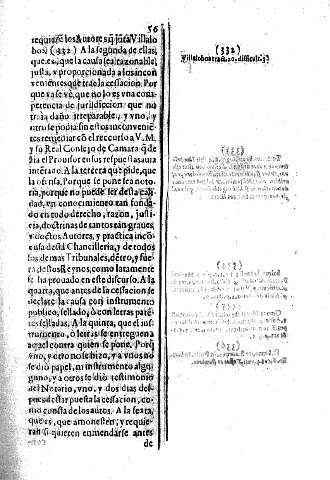 56
requiriēse los Autores sun junta Villalo
bos. (332) A la segunda de ellas,
que es, que la causa sea razonable,
justa, y proporcionada a los incon
venientes que trae la cessacion. Por
que ya se vè, que no lo es vna com
petencia de jurisdiccion que no
traìa daño irreparable, y vno, y
otro se podia en estos inconvenie
tes remediar cō el recurso a V. M.
y su Real Consejo de Camara q̃ de
dia el Provisor en su respuesta avia
intētado. A la tercera que pide, que
la ofensa. Porque se pone sea noto
ria, porque no puede ser desta cali
dad, en conocimiento tan fundado
cō todo derecho, razon, justi
cia, doctrinas de santos tan graves,
y doctos Autores, y practica incō
cusa desta Chancilleria, y de todos
los de mas Tribunales, dētro, y fue
ra destos Reynos, como latamente
se ha provado en este discurso. A la
quarta, que antes de la cessacion se
declare la causa con instrumento
publico, sellado, ò con letras paten
tes selladas. A la quinta, que el ins
trumento, ò letras se entreguen a
aquel contra quien se pone. Porq̃
vno, y otro no se hizo, y a vnos no
se diò papel, ni instrumento algu
no, y a otros se diò testimonio
del Notario, vno, y dos dias des
pues de estar puesta la cessacion, co
mo consta de los autos. A la sexta,
que es, que amonesten, y requie
ran si quieren enmendarse antes
de
(332)
Villalobos tract. 20. difficult. 3